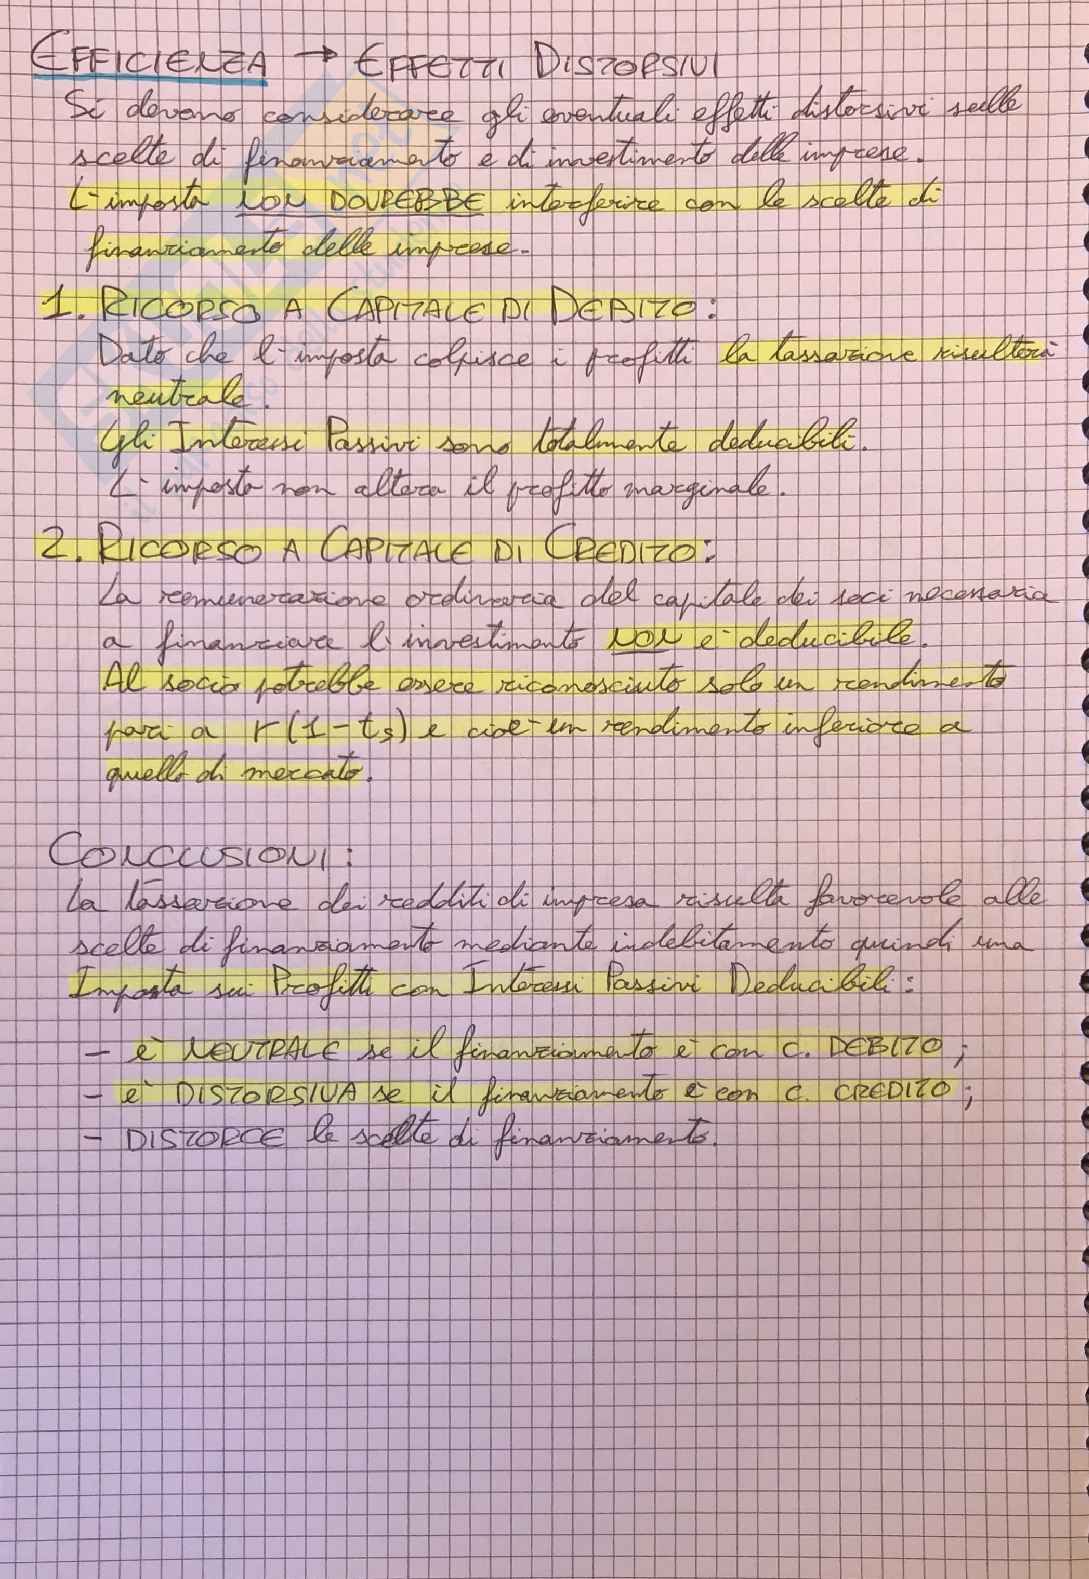 EFFICIENZA → EFFETTI DISTORSIVI
Si devono considerare gli eventuali effetti distorsivi sulle
scelte di finanziamento e di investimento delle imprese.
L'imposta NON DOVREBBE interferire con le scelte di
finanziamento delle imprese.
1. RICORSO A CAPITALE DI DEBITO:
Dato che l'imposta colpisce i profitti la tassazione risulterà
neutrale.
Gli Interessi Passivi sono totalmente deducibili.
L'imposta non altera il profitto marginale.
2. RICORSO A CAPITALE DI CREDITO:
La remunerazione ordinaria del capitale dei soci necessaria
a finanziare l'investimento NON è deducibile.
Al socio potrebbe essere riconosciuto solo un rendimento
pari a r(1-ts) e cioè un rendimento inferiore a
quello di mercato.
CONCLUSIONI:
La tassazione dei redditi di impresa risulta favorevole alle
scelte di finanziamento mediante indebitamento quindi una
Imposta sui Profitti con Interessi Passivi Deducibili:
- è NEUTRALE se il finanziamento è con C. DEBITO;
- è DISTORSIVA se il finanziamento è con C. CREDITO;
- DISTORCE le scelte di finanziamento.